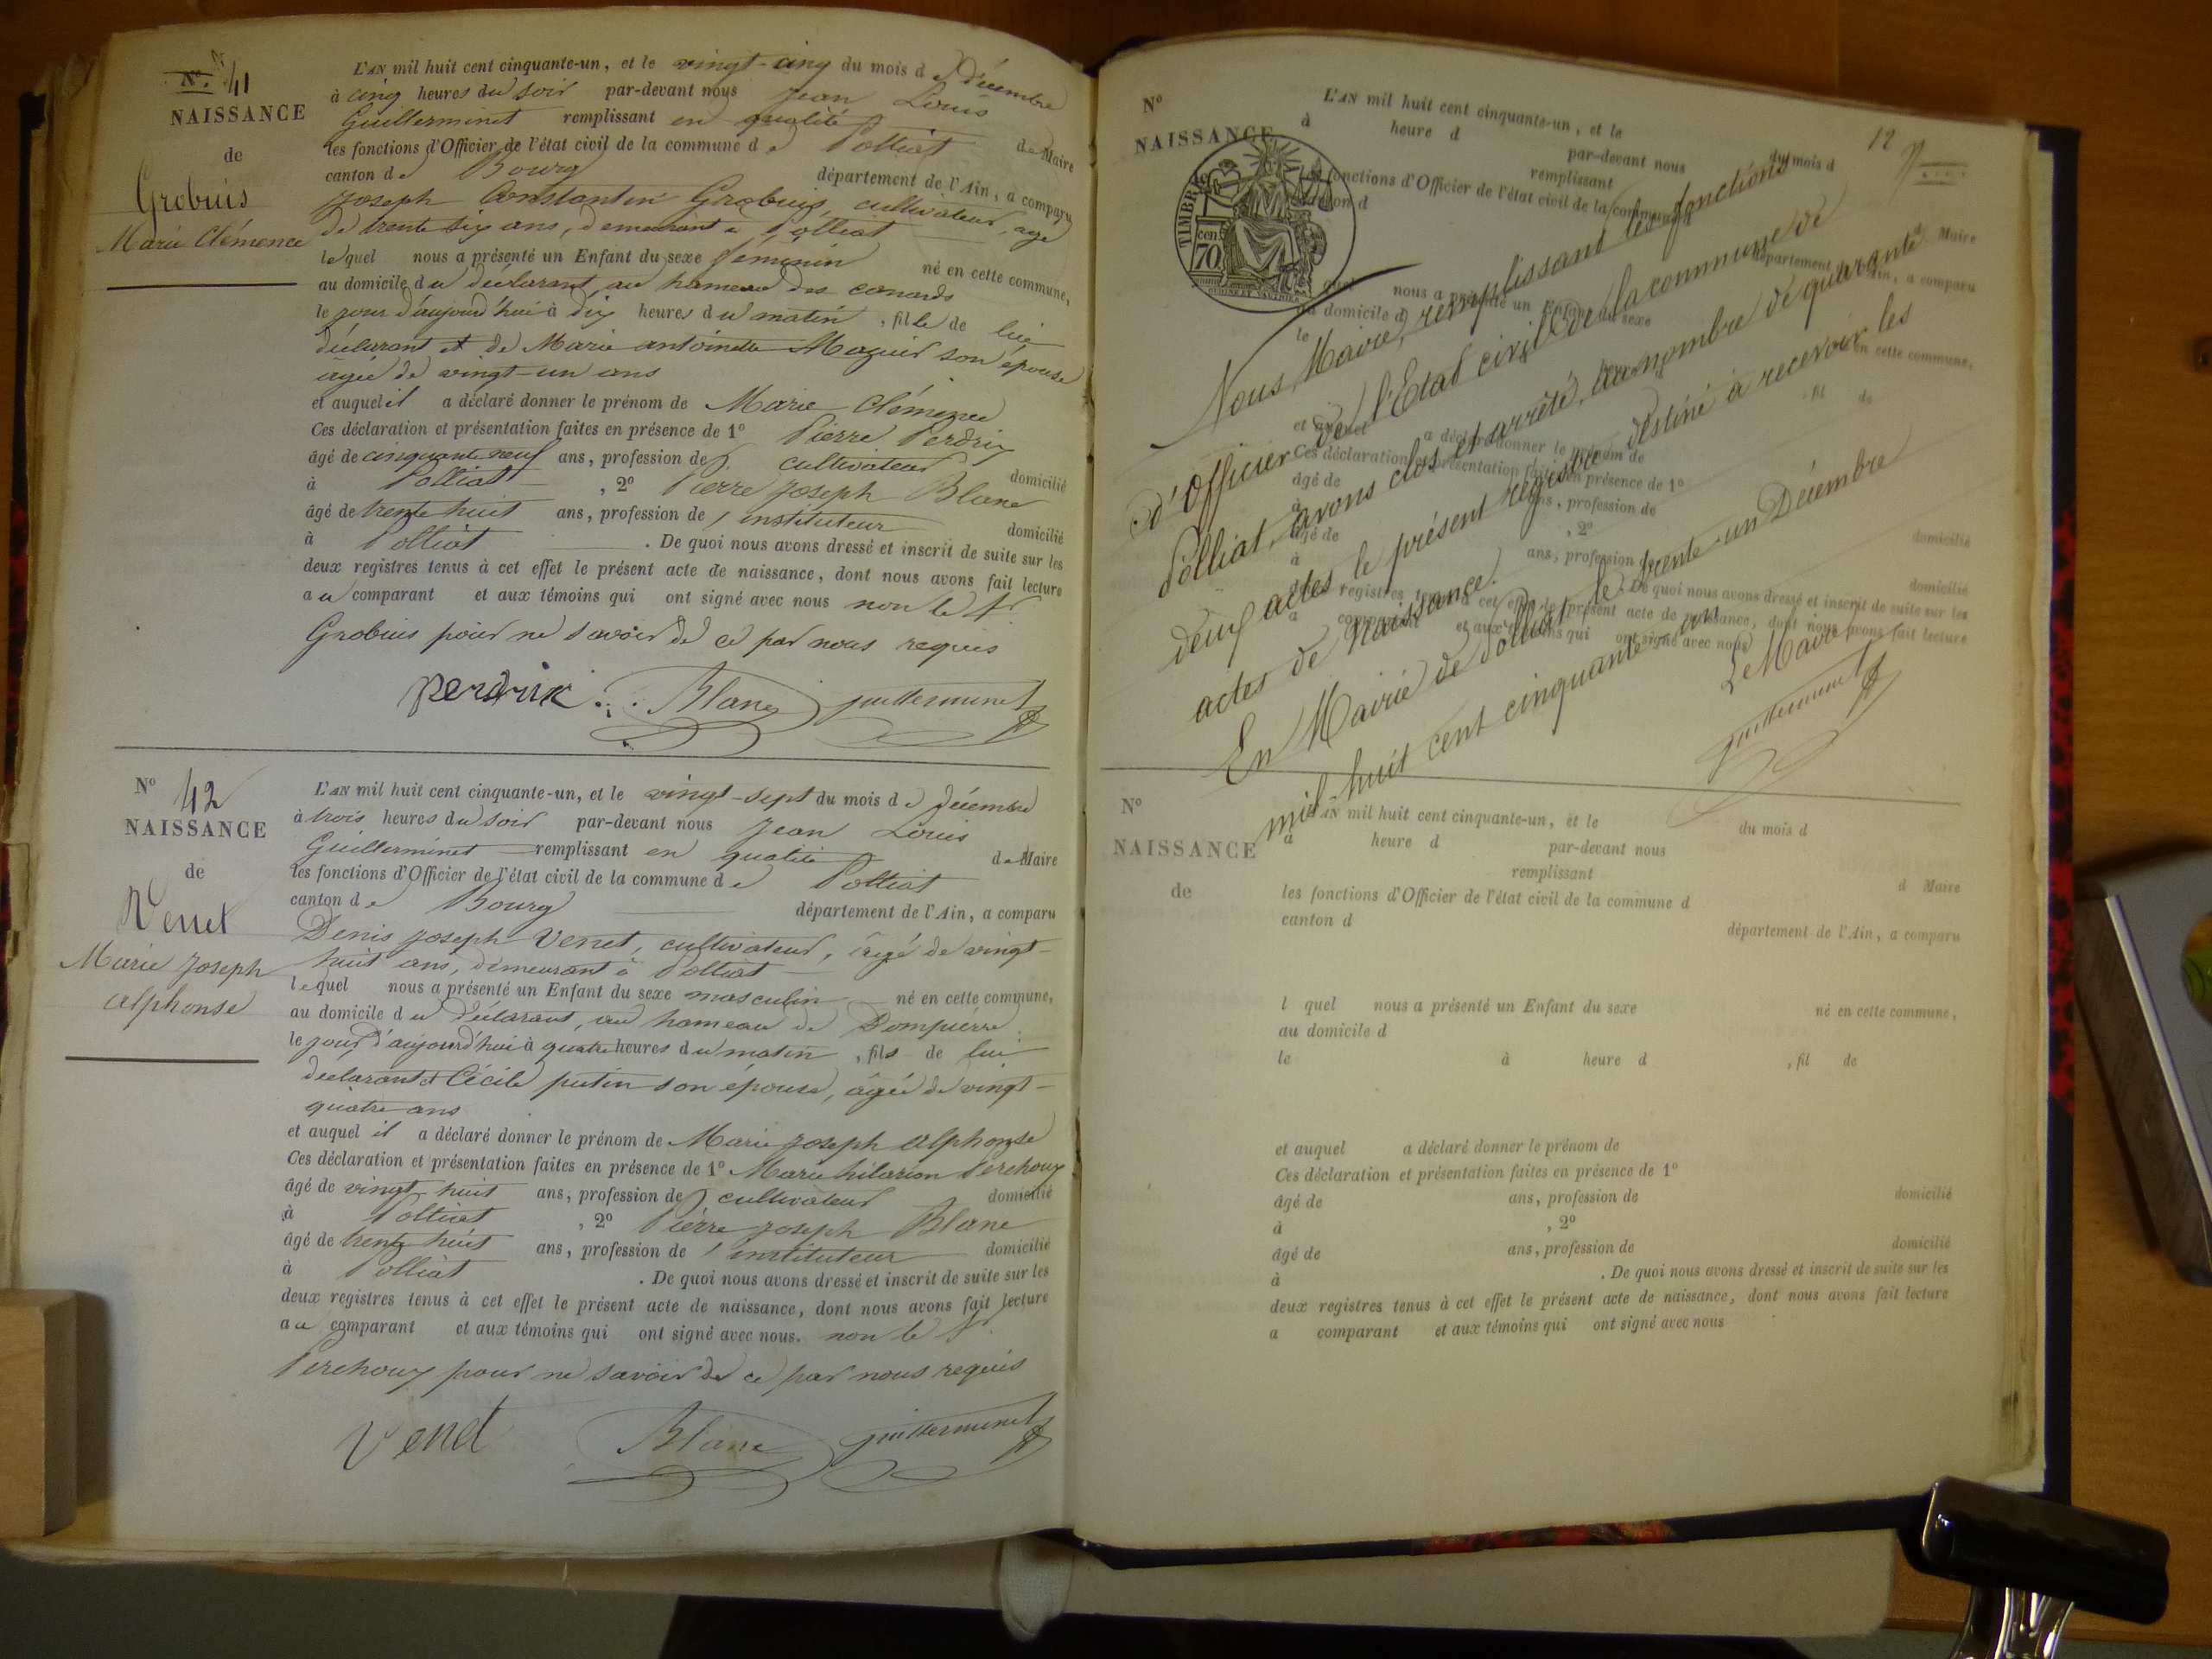 N° 41
NAISSANCE
de
Grobuis
Marie Clémence
L'AN mil huit cent cinquante-un, et le vingt-cinq du mois de Décembre
à cinq heures du soir par-devant nous Jean Louis
Guillerminet remplissant en qualité de Maire
les fonctions d'Officier de l'état civil de la commune de Polliat
canton de Bourg département de l'Ain, a comparu
Joseph Constantin Grobuis, cultivateur, agé
de trente six ans, demeurant à Polliat
lequel nous a présenté un Enfant du sexe féminin né en cette commune,
au domicile du déclarant, au hameau des conards
le jour d'aujourd'hui à dix heures du matin, fille de lui
déclarant et de Marie antoinette Mazuir son épouse
âgée de vingt-un ans
et auquel il a déclaré donner le prénom de Marie Clémence
Ces déclaration et présentation faites en présence de 1° Pierre Perdrix
âgé de cinquante neuf ans, profession de cultivateur domicilié
à Polliat, 2° Pierre Joseph Blanc
âgé de trente huit ans, profession de instituteur domicilié
à Polliat. De quoi nous avons dressé et inscrit de suite sur les
deux registres tenus à cet effet le présent acte de naissance, dont nous avons fait lecture
au comparant et aux témoins qui ont signé avec nous non le
Grobuis pour ne savoir de ce par nous requis
perdrix Blanc guillerminet
N° 42
NAISSANCE
de
Venet
Marie Joseph
alphonse
L'AN mil huit cent cinquante-un, et le vingt-sept du mois de Décembre
à trois heures du soir par-devant nous Jean Louis
Guillerminet remplissant en qualité de Maire
les fonctions d'Officier de l'état civil de la commune de Polliat
canton de Bourg département de l'Ain, a comparu
Denis joseph Venet, cultivateur, âgé de vingt-
huit ans, demeurant à Polliat
lequel nous a présenté un Enfant du sexe masculin né en cette commune,
au domicile du déclarant, au hameau de Dompierre
le jour d'aujourd'hui à quatre heures du matin, fils de lui
déclarant et Cécile putin son épouse, âgée de vingt-
quatre ans
et auquel il a déclaré donner le prénom de Marie joseph alphonse
Ces déclaration et présentation faites en présence de 1° Marie hilarion Perchoux
âgé de vingt huit ans, profession de cultivateur domicilié
à Polliat, 2° Pierre joseph Blanc
âgé de trente huit ans, profession de instituteur domicilié
à Polliat. De quoi nous avons dressé et inscrit de suite sur les
deux registres tenus à cet effet le présent acte de naissance, dont nous avons fait lecture
au comparant et aux témoins qui ont signé avec nous. non le
Perchoux pour ne savoir de ce par nous requis
Venet Blanc guillerminet
12
N°
NAISSANCE
TIMBRE
70 cen
L'AN mil huit cent cinquante-un, et le du mois d
à heure d par-devant nous
remplissant d Maire
les fonctions d'Officier de l'état civil de la commune d
canton d département de l'Ain, a comparu
quel nous a présenté un Enfant du sexe né en cette commune,
au domicile d
le fil de
et auquel a déclaré donner le prénom de
Ces déclaration et présentation faites en présence de 1°
âgé de ans, profession de domicilié
à , 2°
âgé de ans, profession de domicilié
à . De quoi nous avons dressé et inscrit de suite sur les
deux registres tenus à cet effet le présent acte de naissance, dont nous avons fait lecture
a comparant et aux témoins qui ont signé avec nous
Nous, Maire, remplissant les fonctions
d'Officier de l'Etat civil de la commune de
Polliat, avons clos et arrêté, au nombre de quarante
deux actes le présent registre destiné à recevoir les
actes de Naissance.
En Mairie de Polliat le trente-un Décembre
mil-huit cent cinquante-un
Le Maire
guillerminet
N°
NAISSANCE
de
L'AN mil huit cent cinquante-un, et le du mois d
à heure d par-devant nous
remplissant d Maire
les fonctions d'Officier de l'état civil de la commune d
canton d département de l'Ain, a comparu
l quel nous a présenté un Enfant du sexe né en cette commune,
au domicile d
le à heure d , fil de
et auquel a déclaré donner le prénom de
Ces déclaration et présentation faites en présence de 1°
âgé de ans, profession de domicilié
à , 2°
âgé de ans, profession de domicilié
à . De quoi nous avons dressé et inscrit de suite sur les
deux registres tenus à cet effet le présent acte de naissance, dont nous avons fait lecture
a comparant et aux témoins qui ont signé avec nous